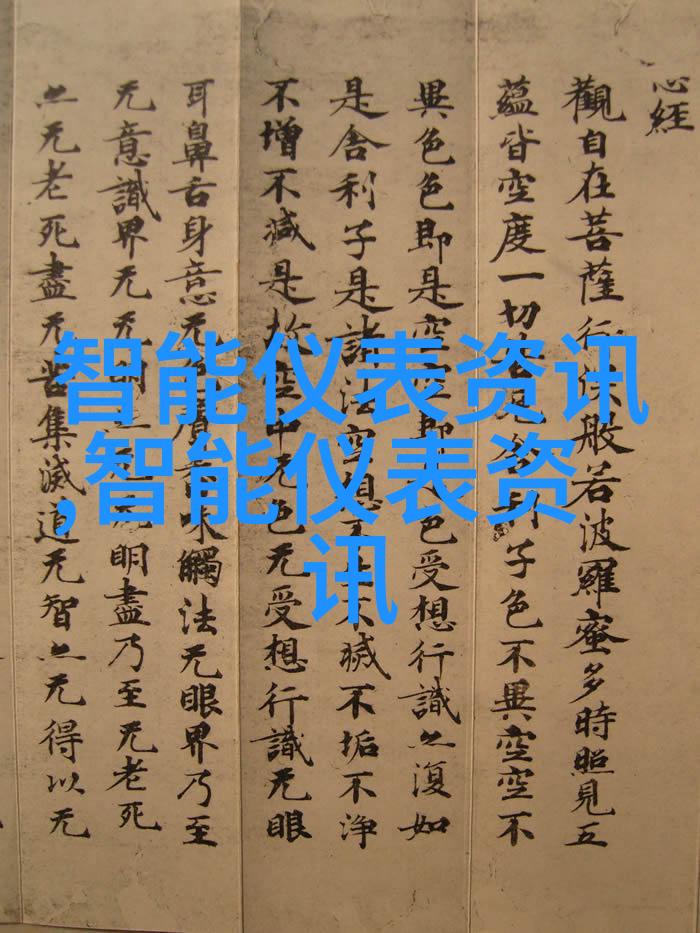 心經
觀自在菩薩行深般若波羅蜜多時照見五
蘊皆空度一切利子色不異空空不
異色色即是空空即色受想行識亦復如
是舍利子是諸法空想不不滅不垢不淨
不增不減是故空中无色无受想行識无眼
耳鼻舌身意无香味觸法无眼界乃至
无意識界无无明明盡乃至无老死
亦无老死盡无苦集滅道无智亦无得以无
智能仪表资讯
,智能仪表资
讯